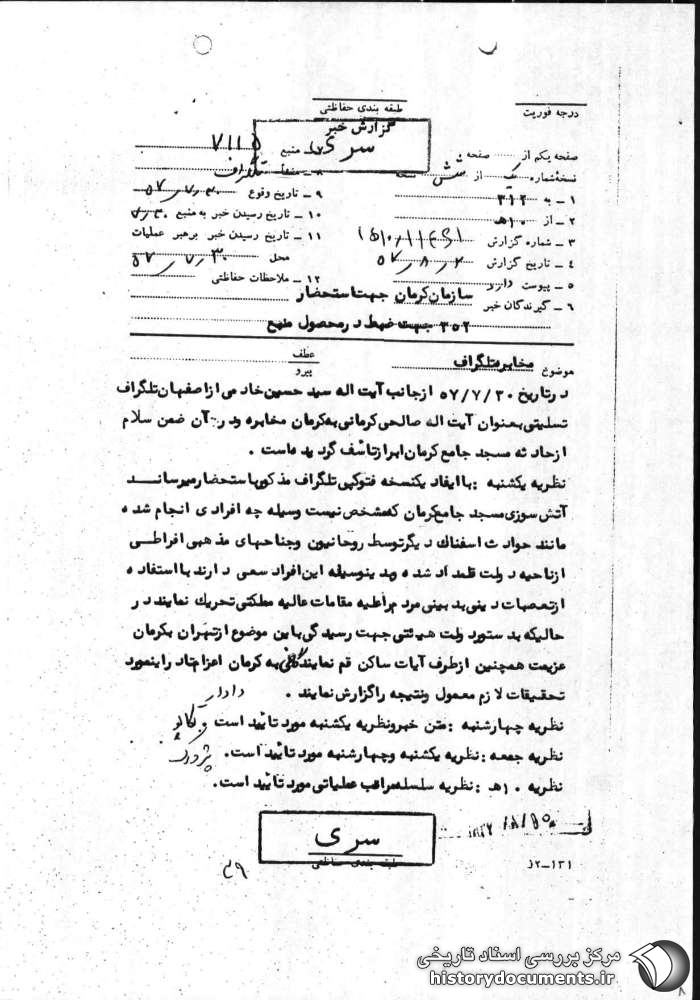 طبقه بندی حفاظتی
درجه فوریت
گزارش خبر
سری
صفحه یکم از صفحه
نسخه شماره یک از شش نسخه
۱ ـ به ۳۱۲
۲ ـ از ۱۰ه
۳ ـ شماره گزارش
۴ ـ تاریخ گزارش ۵۷/۸/۲
۵ ـ پیوست دارد
۶ ـ گیرندگان خبر سازمان کرمان جهت استحضار
۳۵۲ جهت ضبط در محصول منبع
منبع ۷۱۱۵
۸ ـ منشأ تلگراف
۹ ـ تاریخ وقوع ۵۷/۷/۳۰
۱۰ ـ تاریخ رسیدن خبر به منبع
۱۱ ـ تاریخ رسیدن خبر برهبر عملیات
محل ۵۷/۷/۳۰
۱۲ ـ ملاحظات حفاظتی
موضوع مخابره تلگراف
عطف
پیرو
در تاریخ ۵۷/۷/۳۰ از جانب آیت اله سید حسین خادمی از اصفهان تلگراف
تسلیتی بعنوان آیت اله صالحی کرمانی به کرمان مخابره و در آن ضمن سلام
از حادثه مسجد جامع کرمان ابراز تاسف گردیده است .
نظریه یکشنبه : با ایفاد یکنسخه فتوکپی تلگراف مذکور باستحضار میرساند
آتش سوزی مسجد جامع کرمان که مشخص نیست وسیله چه افرادی انجام شده
مانند حوادث اسفناک دیگر توسط روحانیون و جناحهای مذهبی افراطی
از ناحیه دولت قلمداد شده و بدینوسیله این افراد سعی دارند با استفاده
از تعصبات دینی بدبینی مردم را علیه مقامات عالیه مملکتی تحریک نمایند در
حالیکه بدستور دولت هیئتی جهت رسیدگی باین موضوع از تهران بکرمان
عزیمت همچنین از طرف آیات ساکن قم نمایندگانی به کرمان اعزام تا در اینمورد
تحقیقات لازم معمول و نتیجه را گزارش نمایند .
دادار
نظریه چهارشنبه : متن خبر و نظریه یکشنبه مورد تائید است
نظریه جمعه : نظریه یکشنبه و چهارشنبه مورد تائید است.
نظریه ۱۰ه : نظریه سلسله مراقب عملیاتی مورد تائید است.
سری
طبقه بندی حفاظتی
۱۳۱ـ۲د
مرکز بررسی اسناد تاریخی
historydocuments.ir